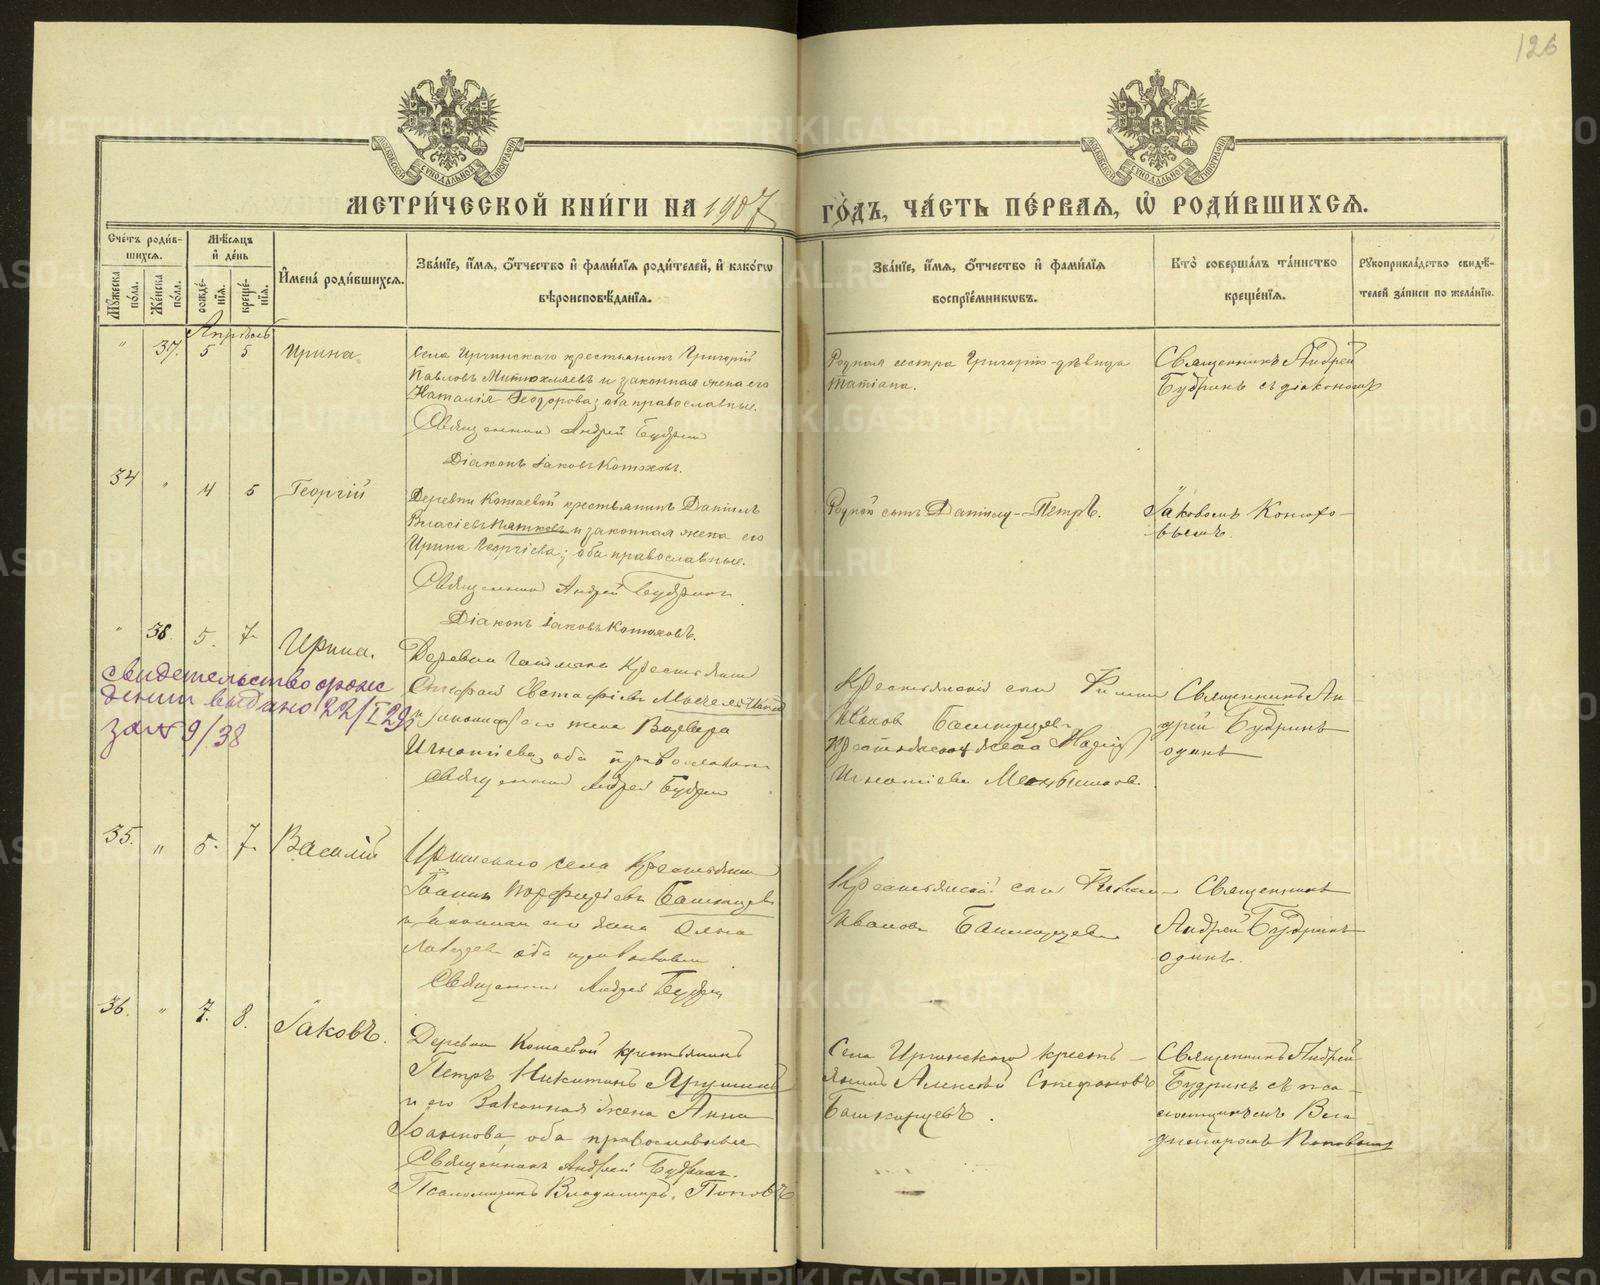 126
МОСКОВСКОЙ СѴНОДАЛЬНОЙ ТИПОГРАФІИ
МОСКОВСКОЙ СѴНОДАЛЬНОЙ ТИПОГРАФІИ
МЕТРИ́ЧЕСКОЙ КНИ́ГИ НА 1907 ГО́ДЪ, ЧА́СТЬ ПЕ́РВАѦ, Ѡ РОДИ́ВШИХСѦ.
Сче́тъ роди́в-
шихсѧ.
Мꙋ́жеска по́ла.
Же́нска по́ла.
Мѣ́сѧцъ и҆ де́нь
рожде́-
нїѧ.
креще́-
нїѧ.
И҆мена̀ роди́вшихсѧ.
Зва́нїе, и҆́мѧ, ѻ҆́тчество и҆ фами́лїѧ роди́телей, и҆ како́гѡ
вѣроисповѣ́данїѧ.
Зва́нїе, и҆́мѧ, ѻ҆́тчество и҆ фами́лїѧ
воспрїе́мникѡвъ.
Кто̀ соверша́лъ та́инство
креще́нїѧ.
Рꙋкоприкла́дство свидѣ́-
телей за́писи по жела́нїю.
Апрѣль
" 37. 5 5 Ирина.
Села Иргинскаго крестьянинъ Григорій
Павловъ Митюхляевъ и законная жена его
Наталія Ѳеодорова; оба православные.
Священникъ Андрей Будринъ
Діаконъ Іаковъ Конюховъ.
Родная сестра Григорію - дѣвица
Татіана.
Священникъ Андрей
Будринъ съ діакономъ
34 " 4 5 Георгій
Деревни Коштаевой крестьянинъ Даніилъ
Власіевъ Пятковъ и законная жена его
Ирина Георгіева; оба православные.
Священникъ Андрей Будринъ
Діаконъ Іаковъ Конюховъ.
Родной сынъ Даніилу - Петръ.
Іаковомъ Конюхо-
вымъ.
" 38. 5. 7. Ирина.
Деревни крестьянинъ
Стефанъ Евстафіевъ
и законная его жена Варвара
Игнатіева, оба православные
Священникъ Андрей Будринъ
свидетельство о рож
дении выдано 22/I 29г
за № 9/38
Крестьянскій сынъ
Ивановъ Башкирцевъ
Крестьянская жена
Игнатіева
Священникъ Ан-
дрей Будринъ
одинъ
35. " 5. 7. Василій
Иргинскаго села Крестьянинъ
Іоаннъ Порфиріевъ Башкирцевъ
и законная его жена
оба православные
Священникъ Андрей Будринъ
Крестьянскій сынъ
Ивановъ Башкирцевъ
Священникъ
Андрей Будринъ
одинъ.
36. " 7. 8. Іаковъ.
Деревни Коштаевой крестьянинъ
Петръ Никитинъ Ярушинъ
и его законная жена Анна
Іоаннова, оба православные
Священникъ Андрей Будринъ.
Псаломщикъ Владимиръ Поповъ
Села Иргинскаго крестъ-
янинъ Алексѣй Стефановъ
Башкирцевъ.
Священникъ Андрей
Будринъ съ пса-
ломщикомъ Вла
димиромъ Поповымъ
METRIKI.GASO-URAL.RU